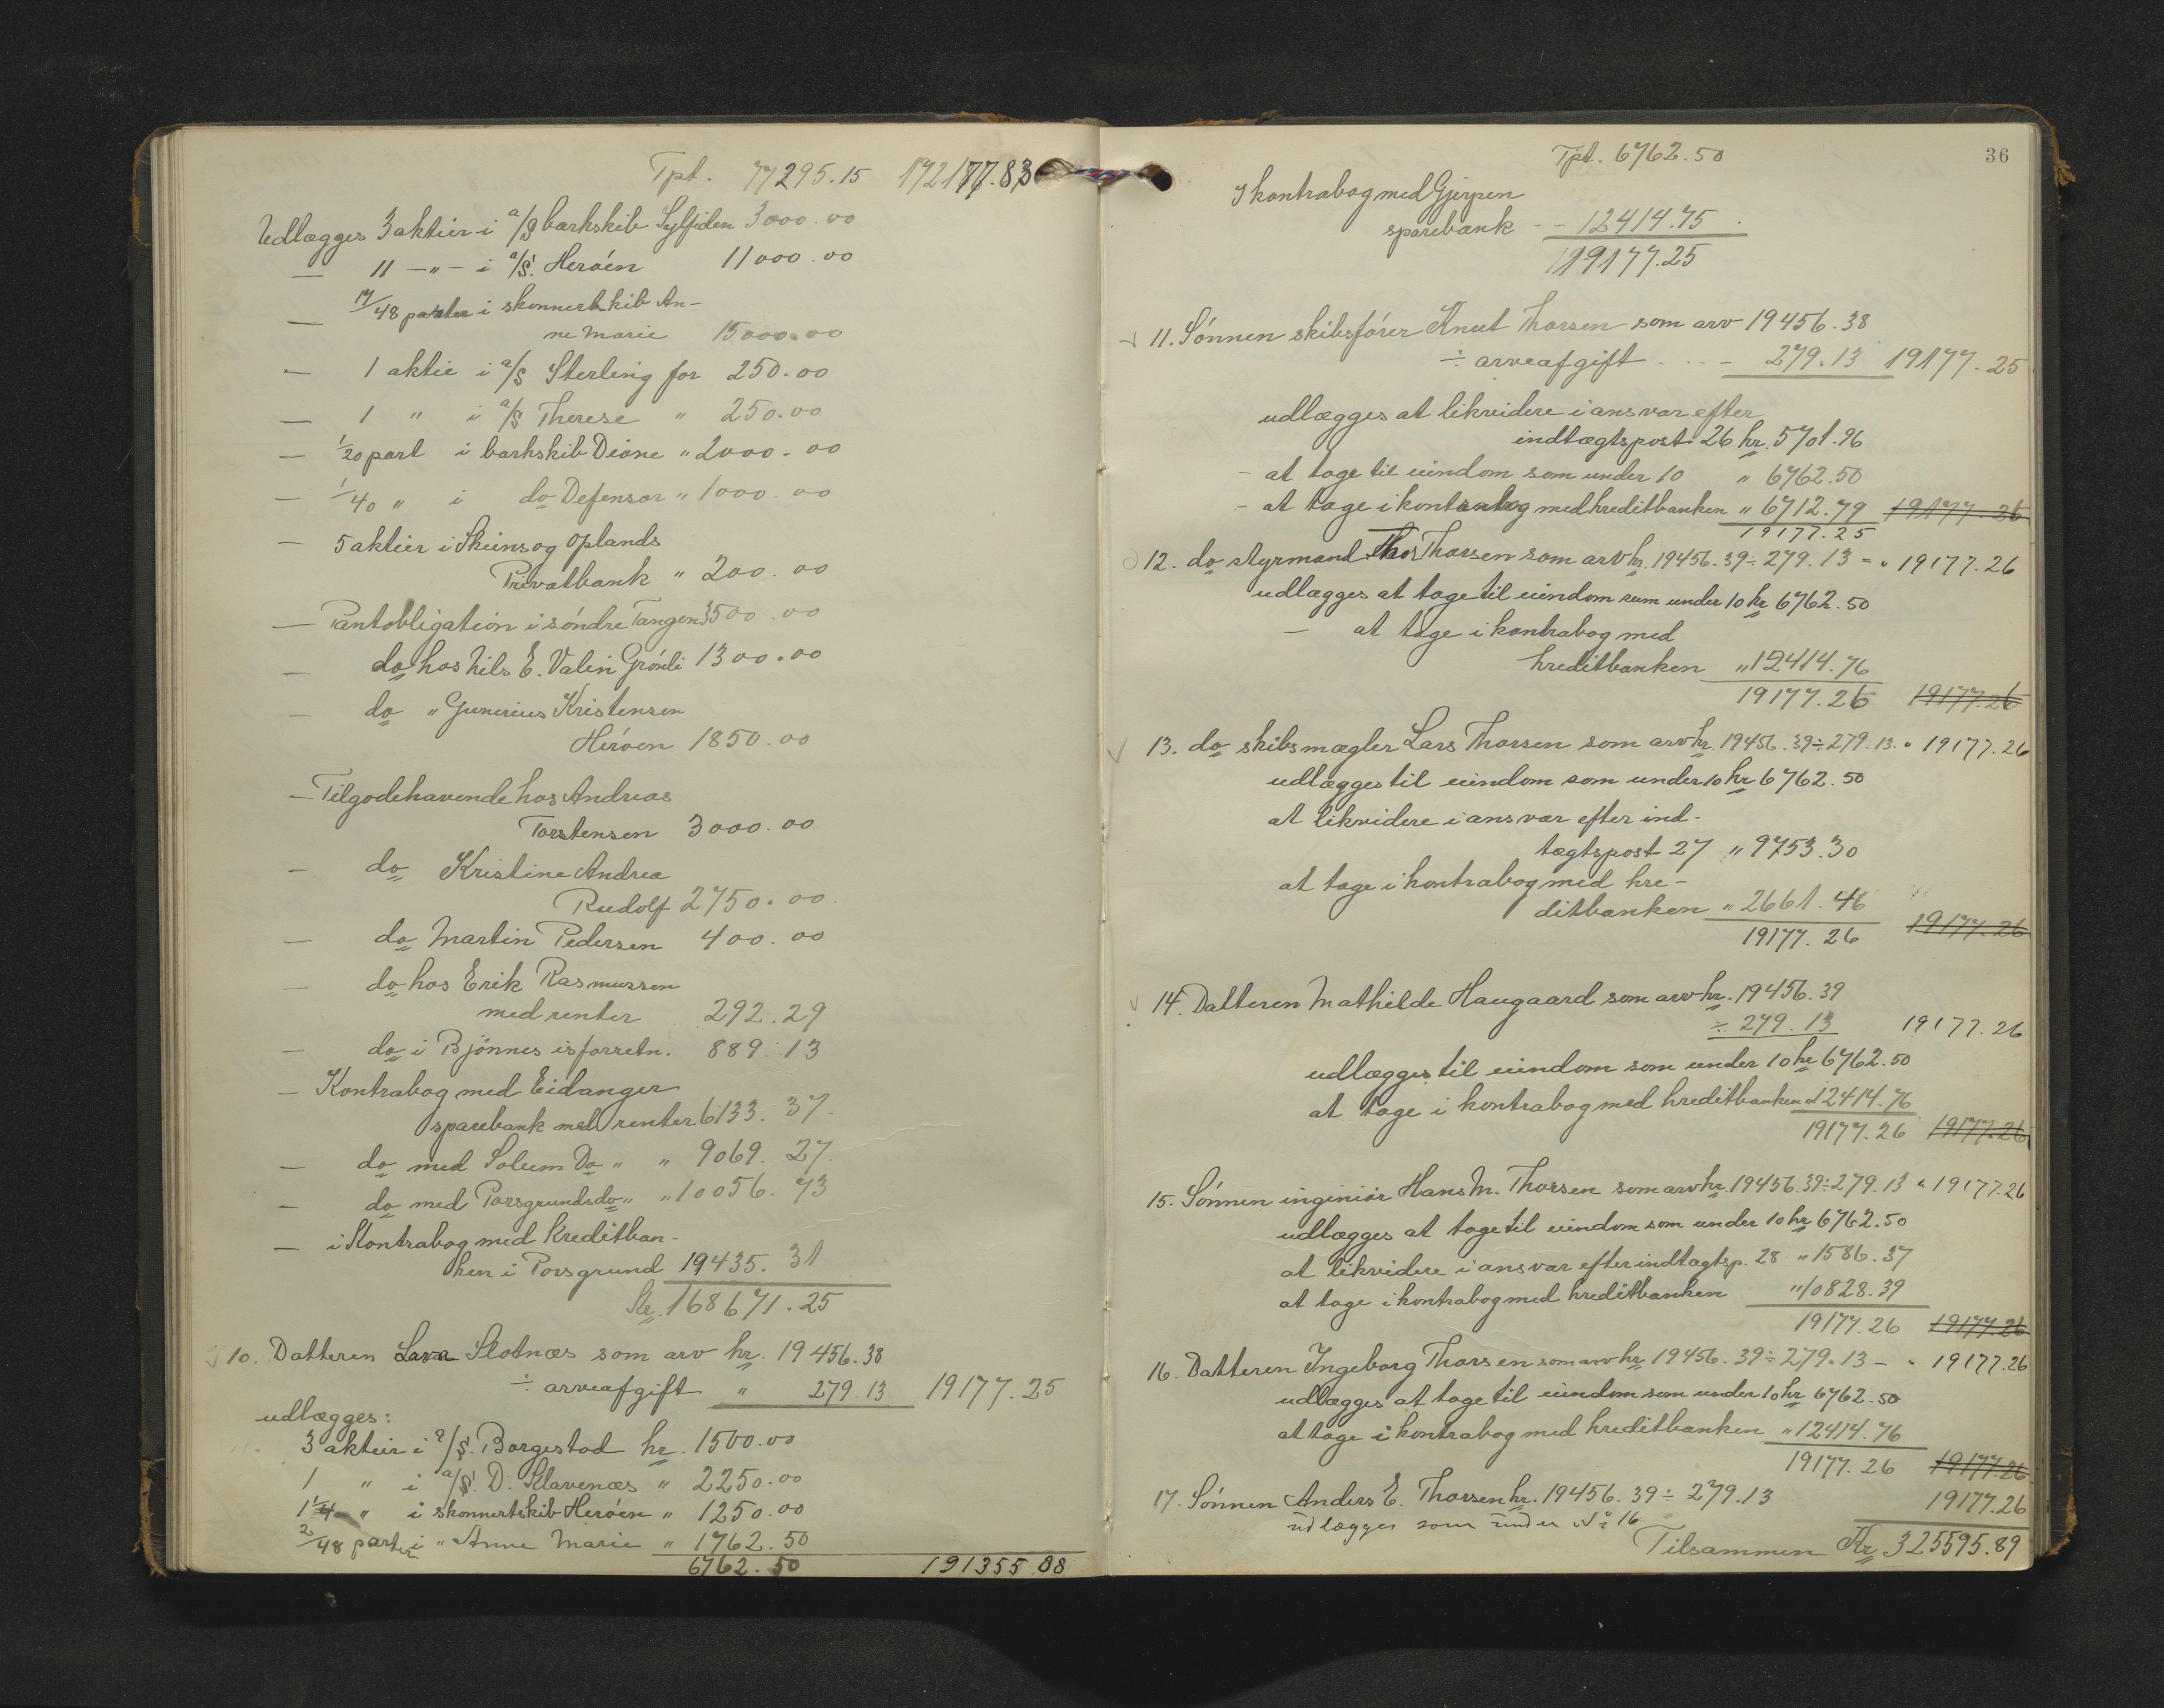 Tpt. 77295.15 172177.83
Udlægges 3 aktier i a/s barkskib Sylfiden 3000.00
— 11 —„— i a/s. Heröen 11000.00
— 17/48 parter i skonnertskib An-
ne Marie 15000.00
— 1 aktie i a/s Sterling for 250.00
— 1 „ i a/s Therese „ 250.00
— 1/20 part i barkskib Dione „ 2000.00
— 1/40 „ i do Defensor „ 1000.00
— 5 aktier i Skiens og Oplands
Privatbank „ 200.00
— Pantobligation i söndre Tangen 3500.00
— do hos Nils E. Valin Grönli 1300.00
— do „ Gunerius Kristensen
Heröen 1850.00
— Tilgodehavende hos Andreas
Torstensen 3000.00
— do Kristine Andrea
Rudolf 2750.00
— do Martin Pedersen 400.00
— do hos Erik Rasmussen
med renter 292.29
— do i Bjönnes isforretn. 889.13
— Kontrabog med Eidanger
sparebank med renter 6133.37
— do med Solum Do „ „ 9069.27
— do med Porsgrunds do „ „ 10056.73
— i Kontrabog med Kreditban-
ken i Porsgrund 19435.31
Kr. 168671.25
10. Datteren Lava Slotnæs som arv kr. 19456.38
÷ arveafgift „ 279.13 19177.25
udlægges:
3 aktier i a/s. Borgestad kr. 1500.00
1 „ i a/s. D. Klavenæs „ 2250.00
1 1/4 „ i skonnertskib Heröen „ 1250.00
2/48 parter i „ Anne Marie „ 1762.50
6762.50 191355.08
36
Tpt. 6762.50
I kontrabog med Gjerpen
sparebank - - 12414.75
19177.25
11. Sönnen skibsförer Knut Thorsen som arv 19456.38
÷ arveafgift . . . - 279.13 19177.25
udlægges at likvidere i ansvar efter
indtægtspost 26 kr. 5701.96
- at tage til eiendom som under 10 „ 6762.50
- at tage i kontrabog med kreditbanken „ 6712.79 19177.26
19177.25
12. do styrmand Thor Thorsen som arv kr. 19456.39 ÷ 279.13 = „ 19177.26
udlægges at tage til eiendom som under 10 kr 6762.50
— at tage i kontrabog med
kreditbanken „ 12414.76
19177.26 19177.26
13. do skibsmægler Lars Thorsen som arv kr. 19456.39 ÷ 279.13. „ 19177.26
udlægges til eiendom som under 10 kr 6762.50
at likvidere i ansvar efter ind-
tægtspost 27 „ 9753.30
at tage i kontrabog med kre-
ditbanken „ 2661.46
19177.26 19177.26
14. Datteren Mathilde Haugaard som arv kr. 19456.39
÷ 279.13 19177.26
udlægges til eiendom som under 10 kr 6762.50
at tage i kontrabog med kreditbanken „ 12414.76
19177.26 19177.26
15. Sönnen inginiör Hans M. Thorsen som arv kr. 19456.39 ÷ 279.13 „ 19177.26
udlægges at tage til eiendom som under 10 kr 6762.50
at likvidere i ansvar efter indtægtsp. 28 „ 1586.37
at tage i kontrabog med kreditbanken „ 10828.39
19177.26 19177.26
16. Datteren Ingeborg Thorsen som arv kr. 19456.39 ÷ 279.13 - „ 19177.26
udlægges at tage til eiendom som under 10 kr 6762.50
at tage i kontrabog med kreditbanken „ 12414.76
19177.26 19177.26
17. Sönnen Anders E. Thorsen kr. 19456.39 ÷ 279.13 19177.26
udlægges som under No 16
Tilsammen Kr. 325595.89